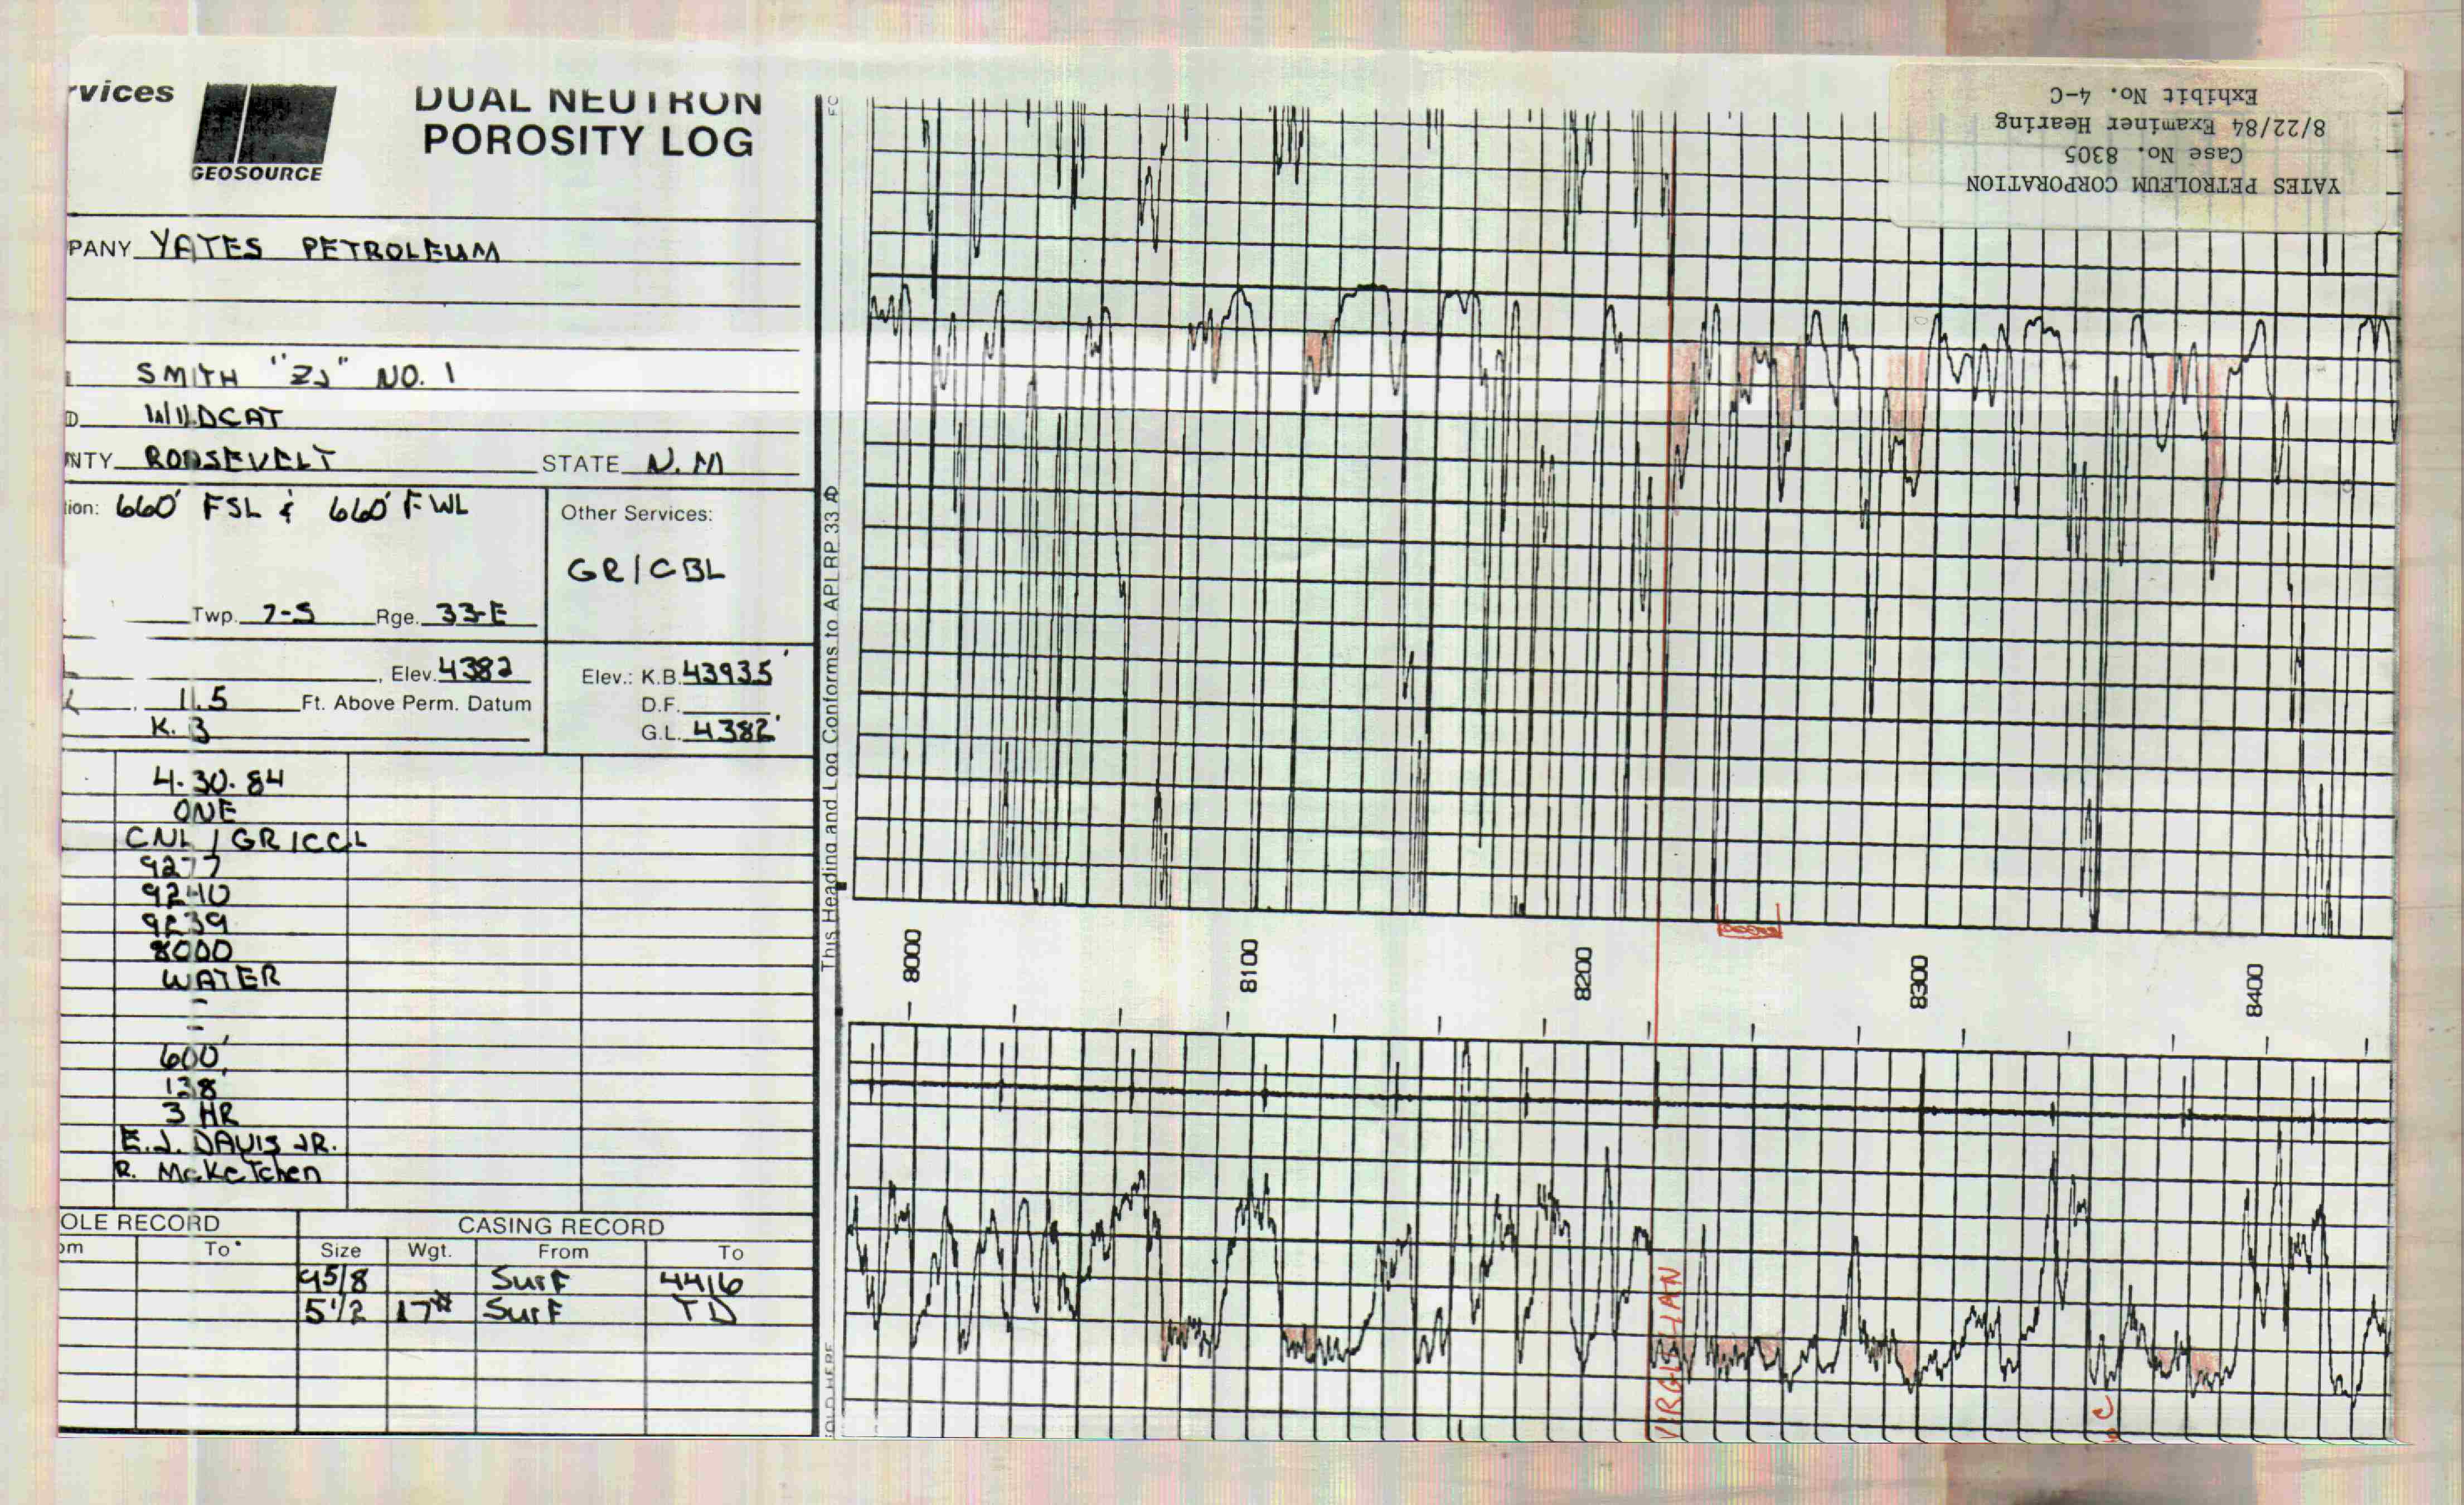 rvices
GEOSOURCE
DUAL NEUTRON
POROSITY LOG
PANY YATES PETROLEUM
SMITH "ZJ" NO. 1
D WILDCAT
NTY ROOSEVELT STATE N.M
tion: 660' FSL & 660' FWL
Other Services:
GR/CBL
Twp. 7-S Rge. 33-E
, Elev. 4382
11.5 Ft. Above Perm. Datum
K.B
Elev.: K.B. 4393.5'
D.F.
G.L. 4382'
4.30.84
ONE
CNL / GR/CCL
9277
9240
9239
8000
WATER
-
-
600'
138
3 HR
E.J. DAVIS JR.
R. McKetchen
OLE RECORD
CASING RECORD
om To Size Wgt. From To
9 5/8 Surf 4416
5 1/2 17# Surf TD
FO
This Heading and Log Conforms to API RP 33
FOLD HERE
YATES PETROLEUM CORPORATION
Case No. 8305
8/22/84 Examiner Hearing
Exhibit No. 4-C
8000
8100
8200
8300
8400
VIRGILIAN
C